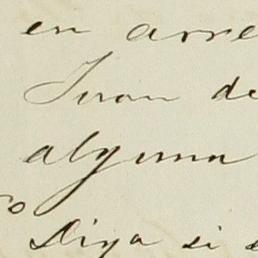 en arre
Juan de
alguna
Diga si e